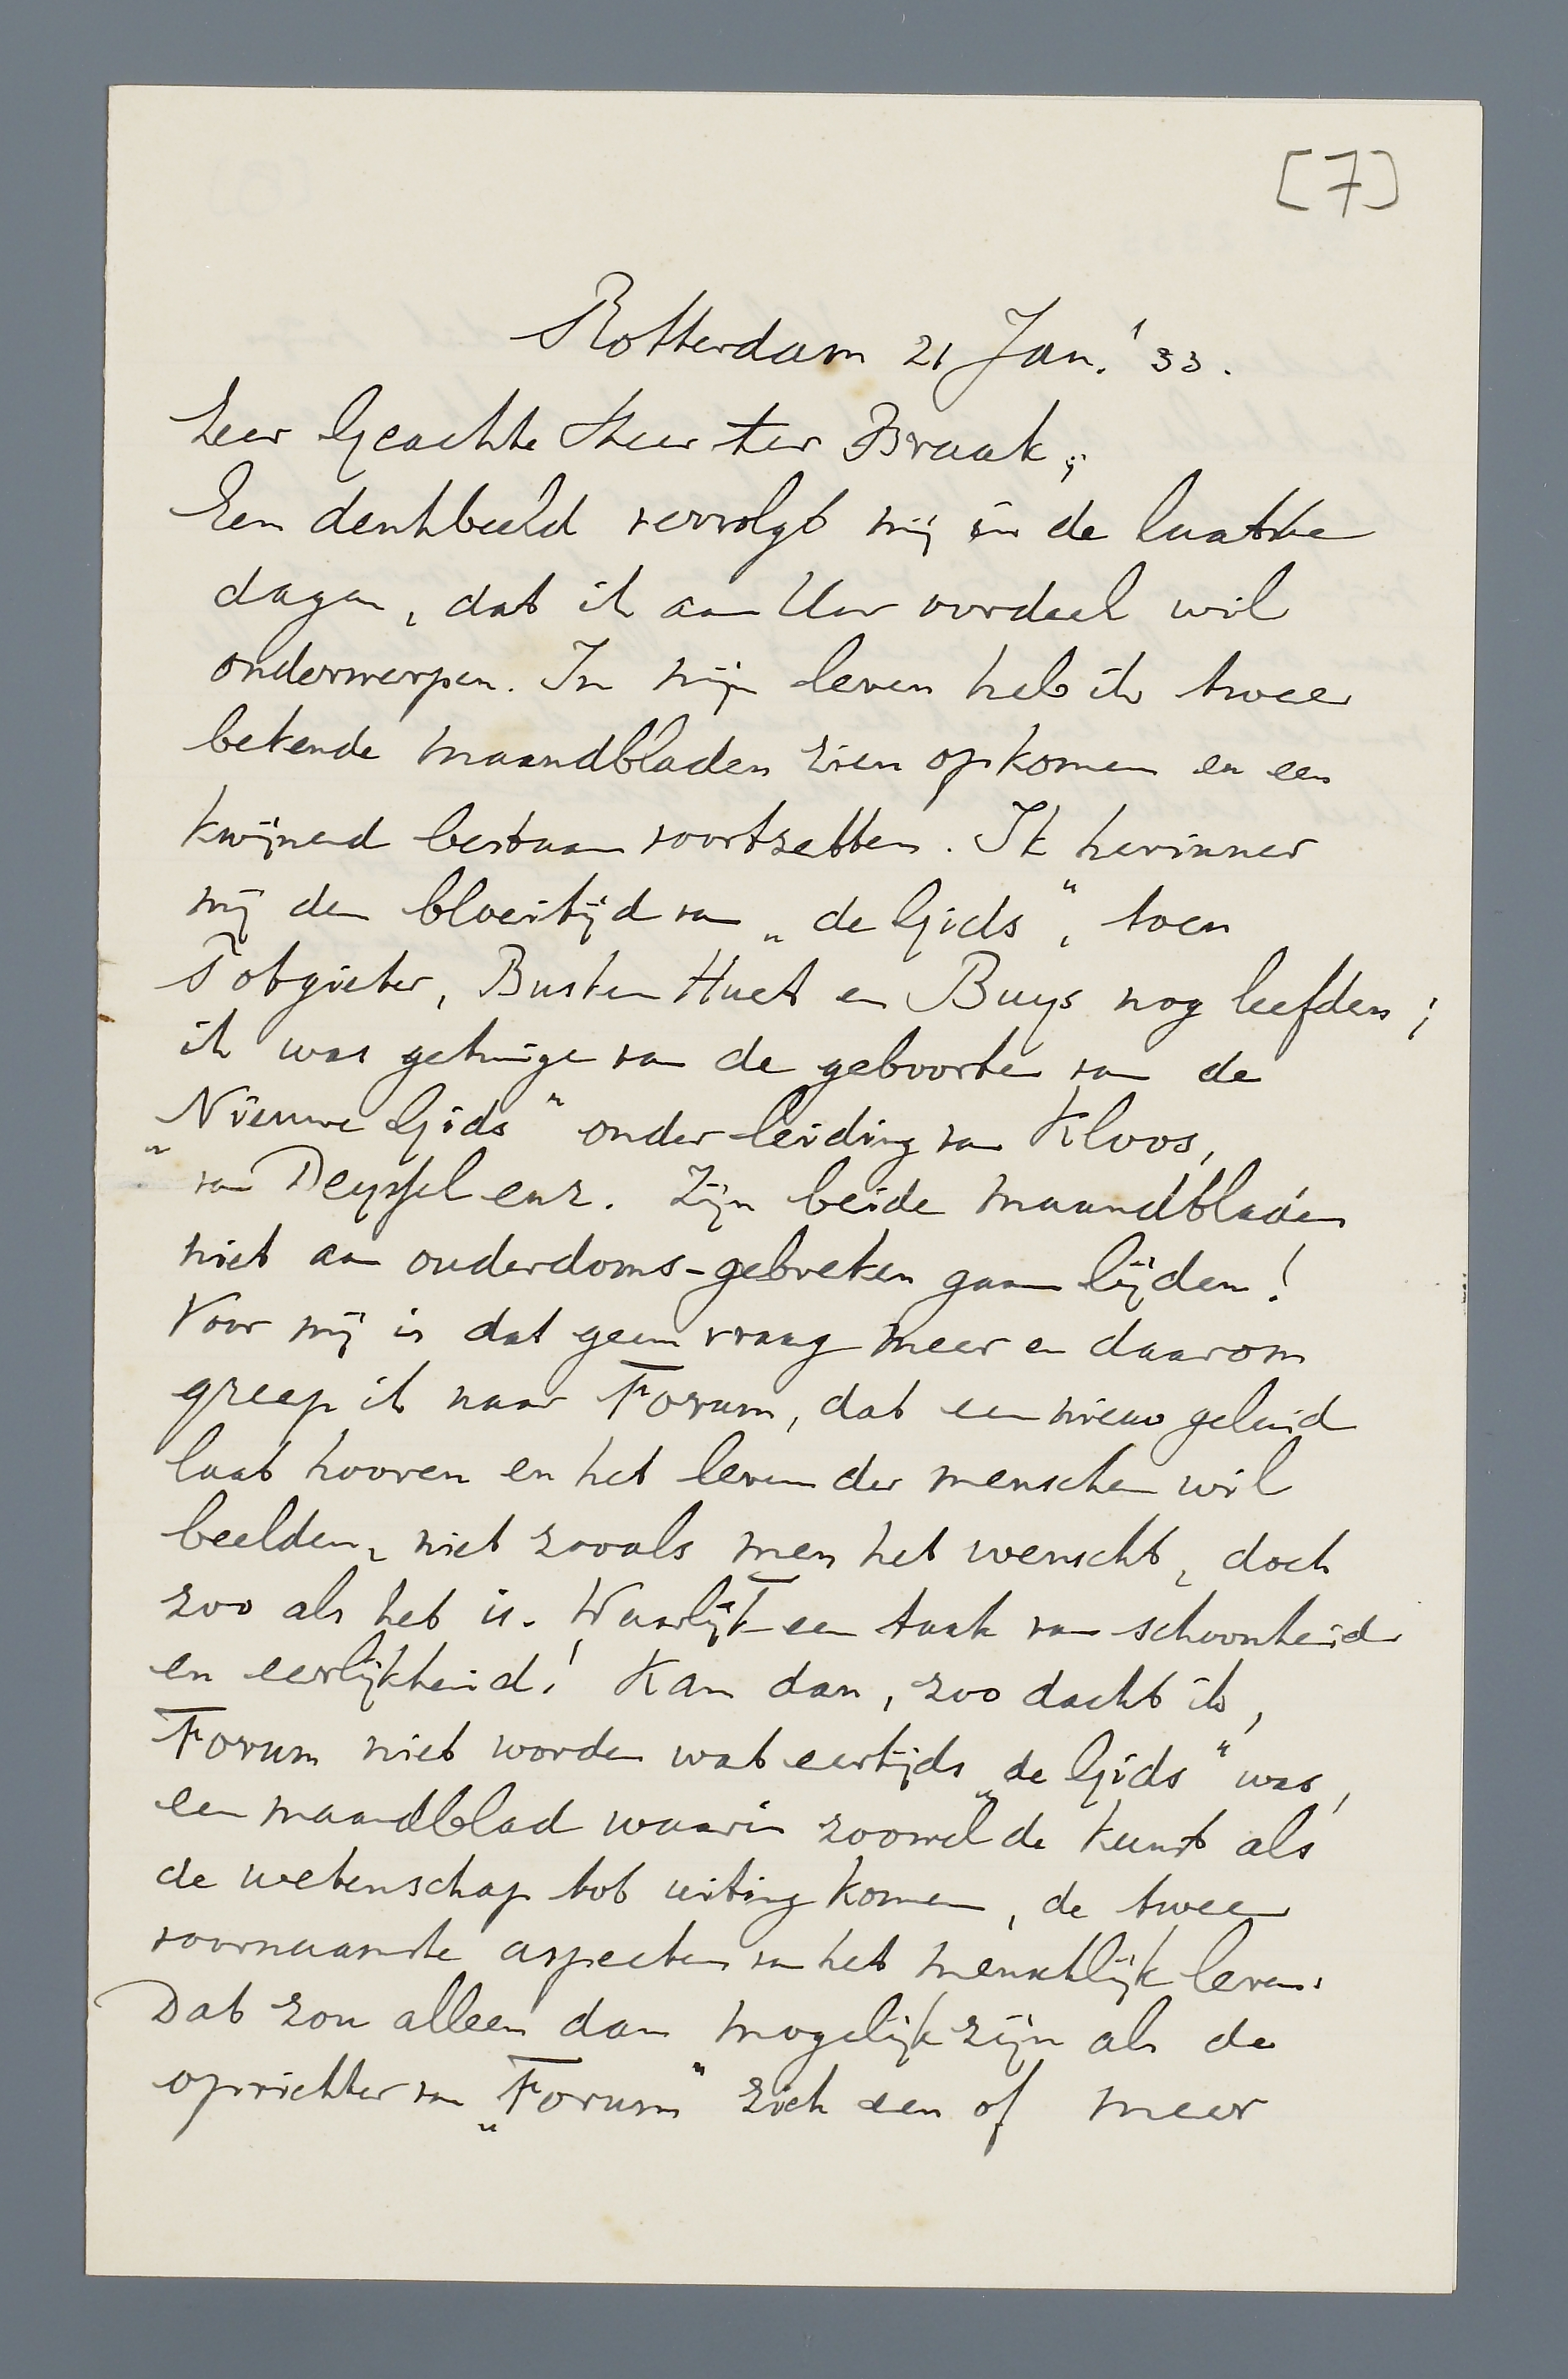 [7]
Rotterdam 21 Jan. '33.
Zeer Geachte Heer ter Braak,
Een denkbeeld vervolgt mij in de laatste
dagen, dat ik aan Uw oordeel wil
onderwerpen. In mijn leven heb ik twee
bekende maandbladen zien opkomen en een
kwijnend bestaan voortzetten. Ik herinner
mij den bloeitijd van „de Gids", toen
Potgieter, Busken Huet en Buys nog leefden;
ik was getuige van de geboorte van de
„Nieuwe Gids" onder leiding van Kloos,
van Deyssel enz. Zijn beide maandbladen
niet aan ouderdoms-gebreken gaan lijden!
Voor mij is dat geen vraag meer en daarom
greep ik naar Forum, dat een nieuw geluid
laat hooren en het leven der menschen wil
beelden, niet zooals men het wenscht, doch
zoo als het is. Waarlijk een taak van schoonheid
en eerlijkheid! Kan dan, zoo dacht ik,
Forum niet worden wat eertijds „de Gids" was,
een maandblad waarin zoowel de kunst als
de wetenschap tot uiting komen, de twee
voornaamste aspecten van het menschlijk leven.
Dat zou alleen dan mogelijk zijn als de
oprichter van „Forum" zich een of meer